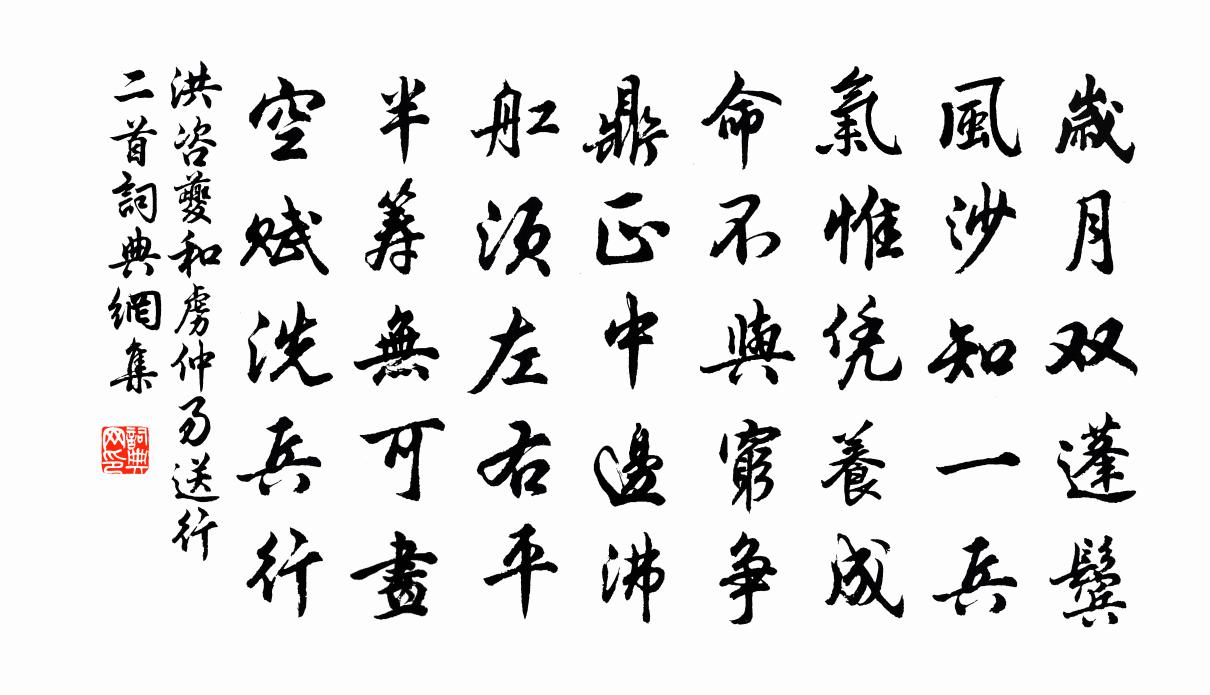 歲月双蓬鬢
風沙知一兵
氣惟凭養成
命不與窮争
鼎正中邊沸
舡須左右平
半筹無可畫
空赋洗兵行
洪咨夔和虏仲易送行
二首詞典網集
詞典网印